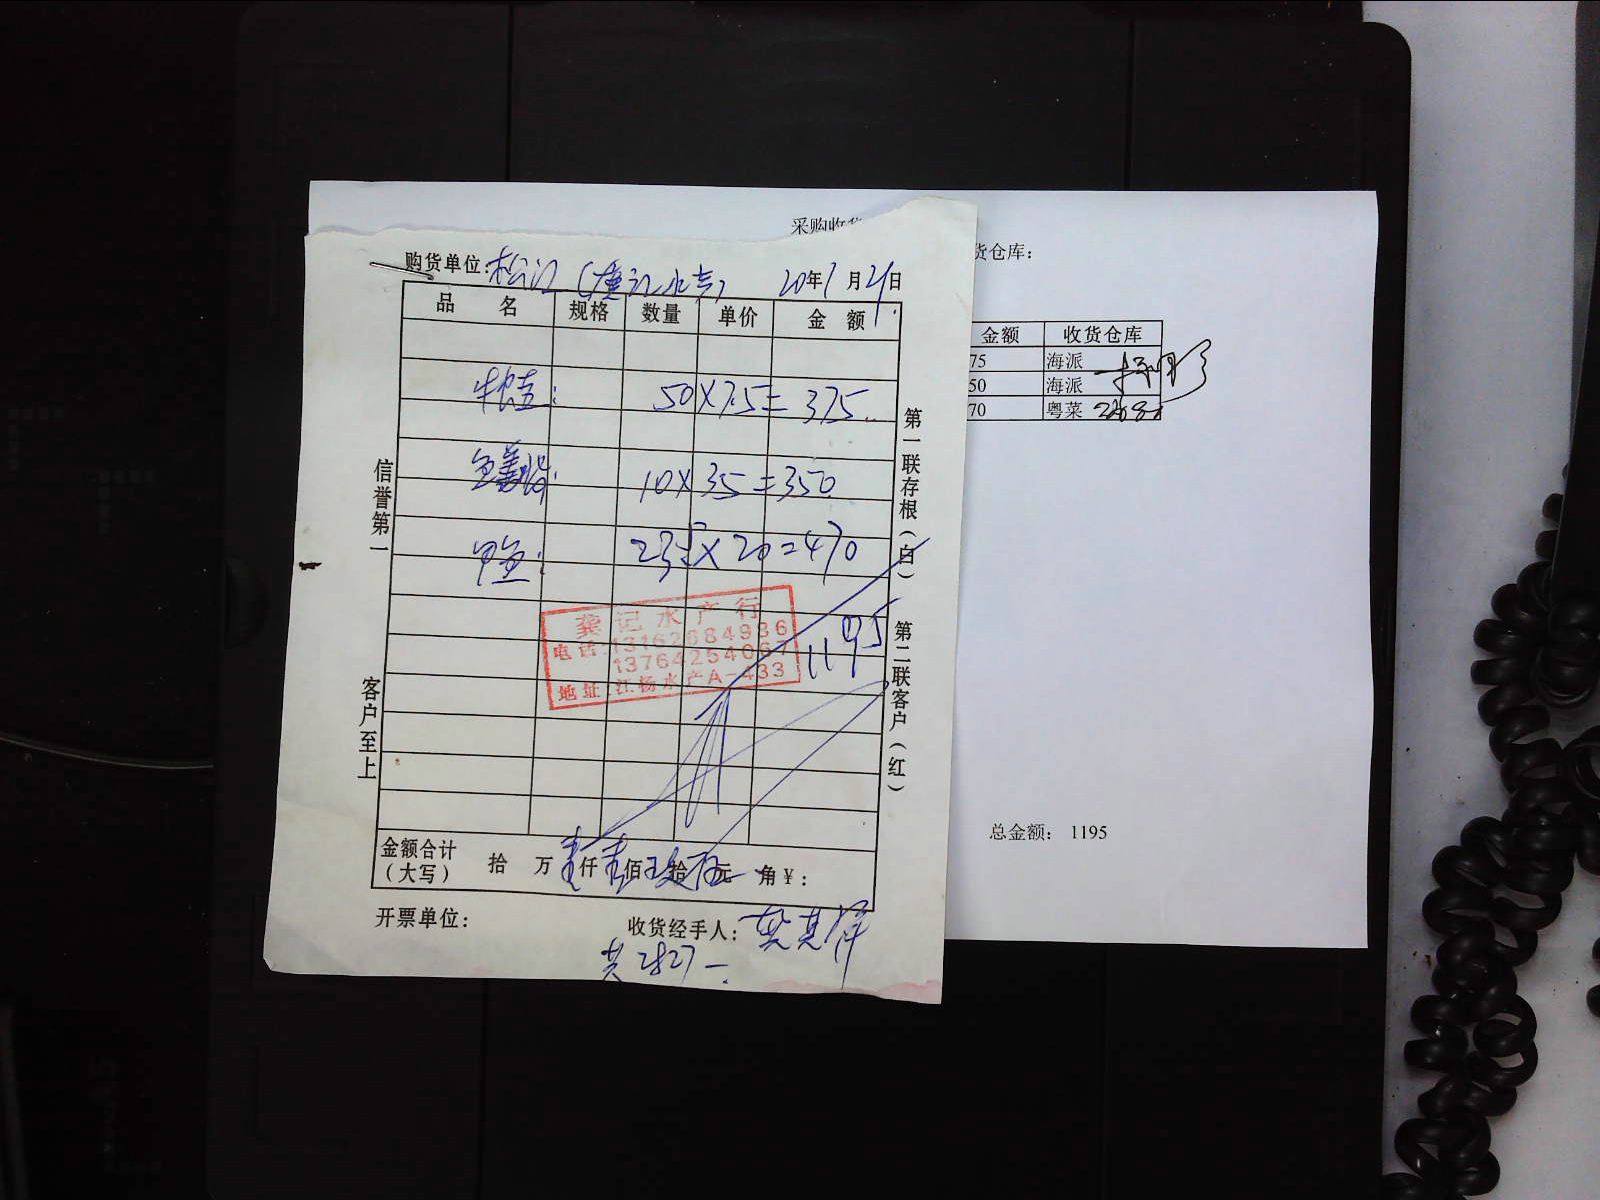 采购收货
货仓库：
金额 收货仓库
75 海派
50 海派
70 粤菜
总金额： 1195
购货单位：松江 20年1月21日
品 名 规格 数量 单价 金 额
牛蛙： 50×7.5=375
10×35=350
甲鱼： 23.5×20=470
1195
龚记水产行
电话：13162684936
13764254067
地址：江杨水产A-433
信誉第一
客户至上
第一联存根（白）
第二联客户（红）
金额合计（大写） 拾 万 壹仟壹佰玖拾伍元 角￥：
开票单位： 收货经手人：
共2827